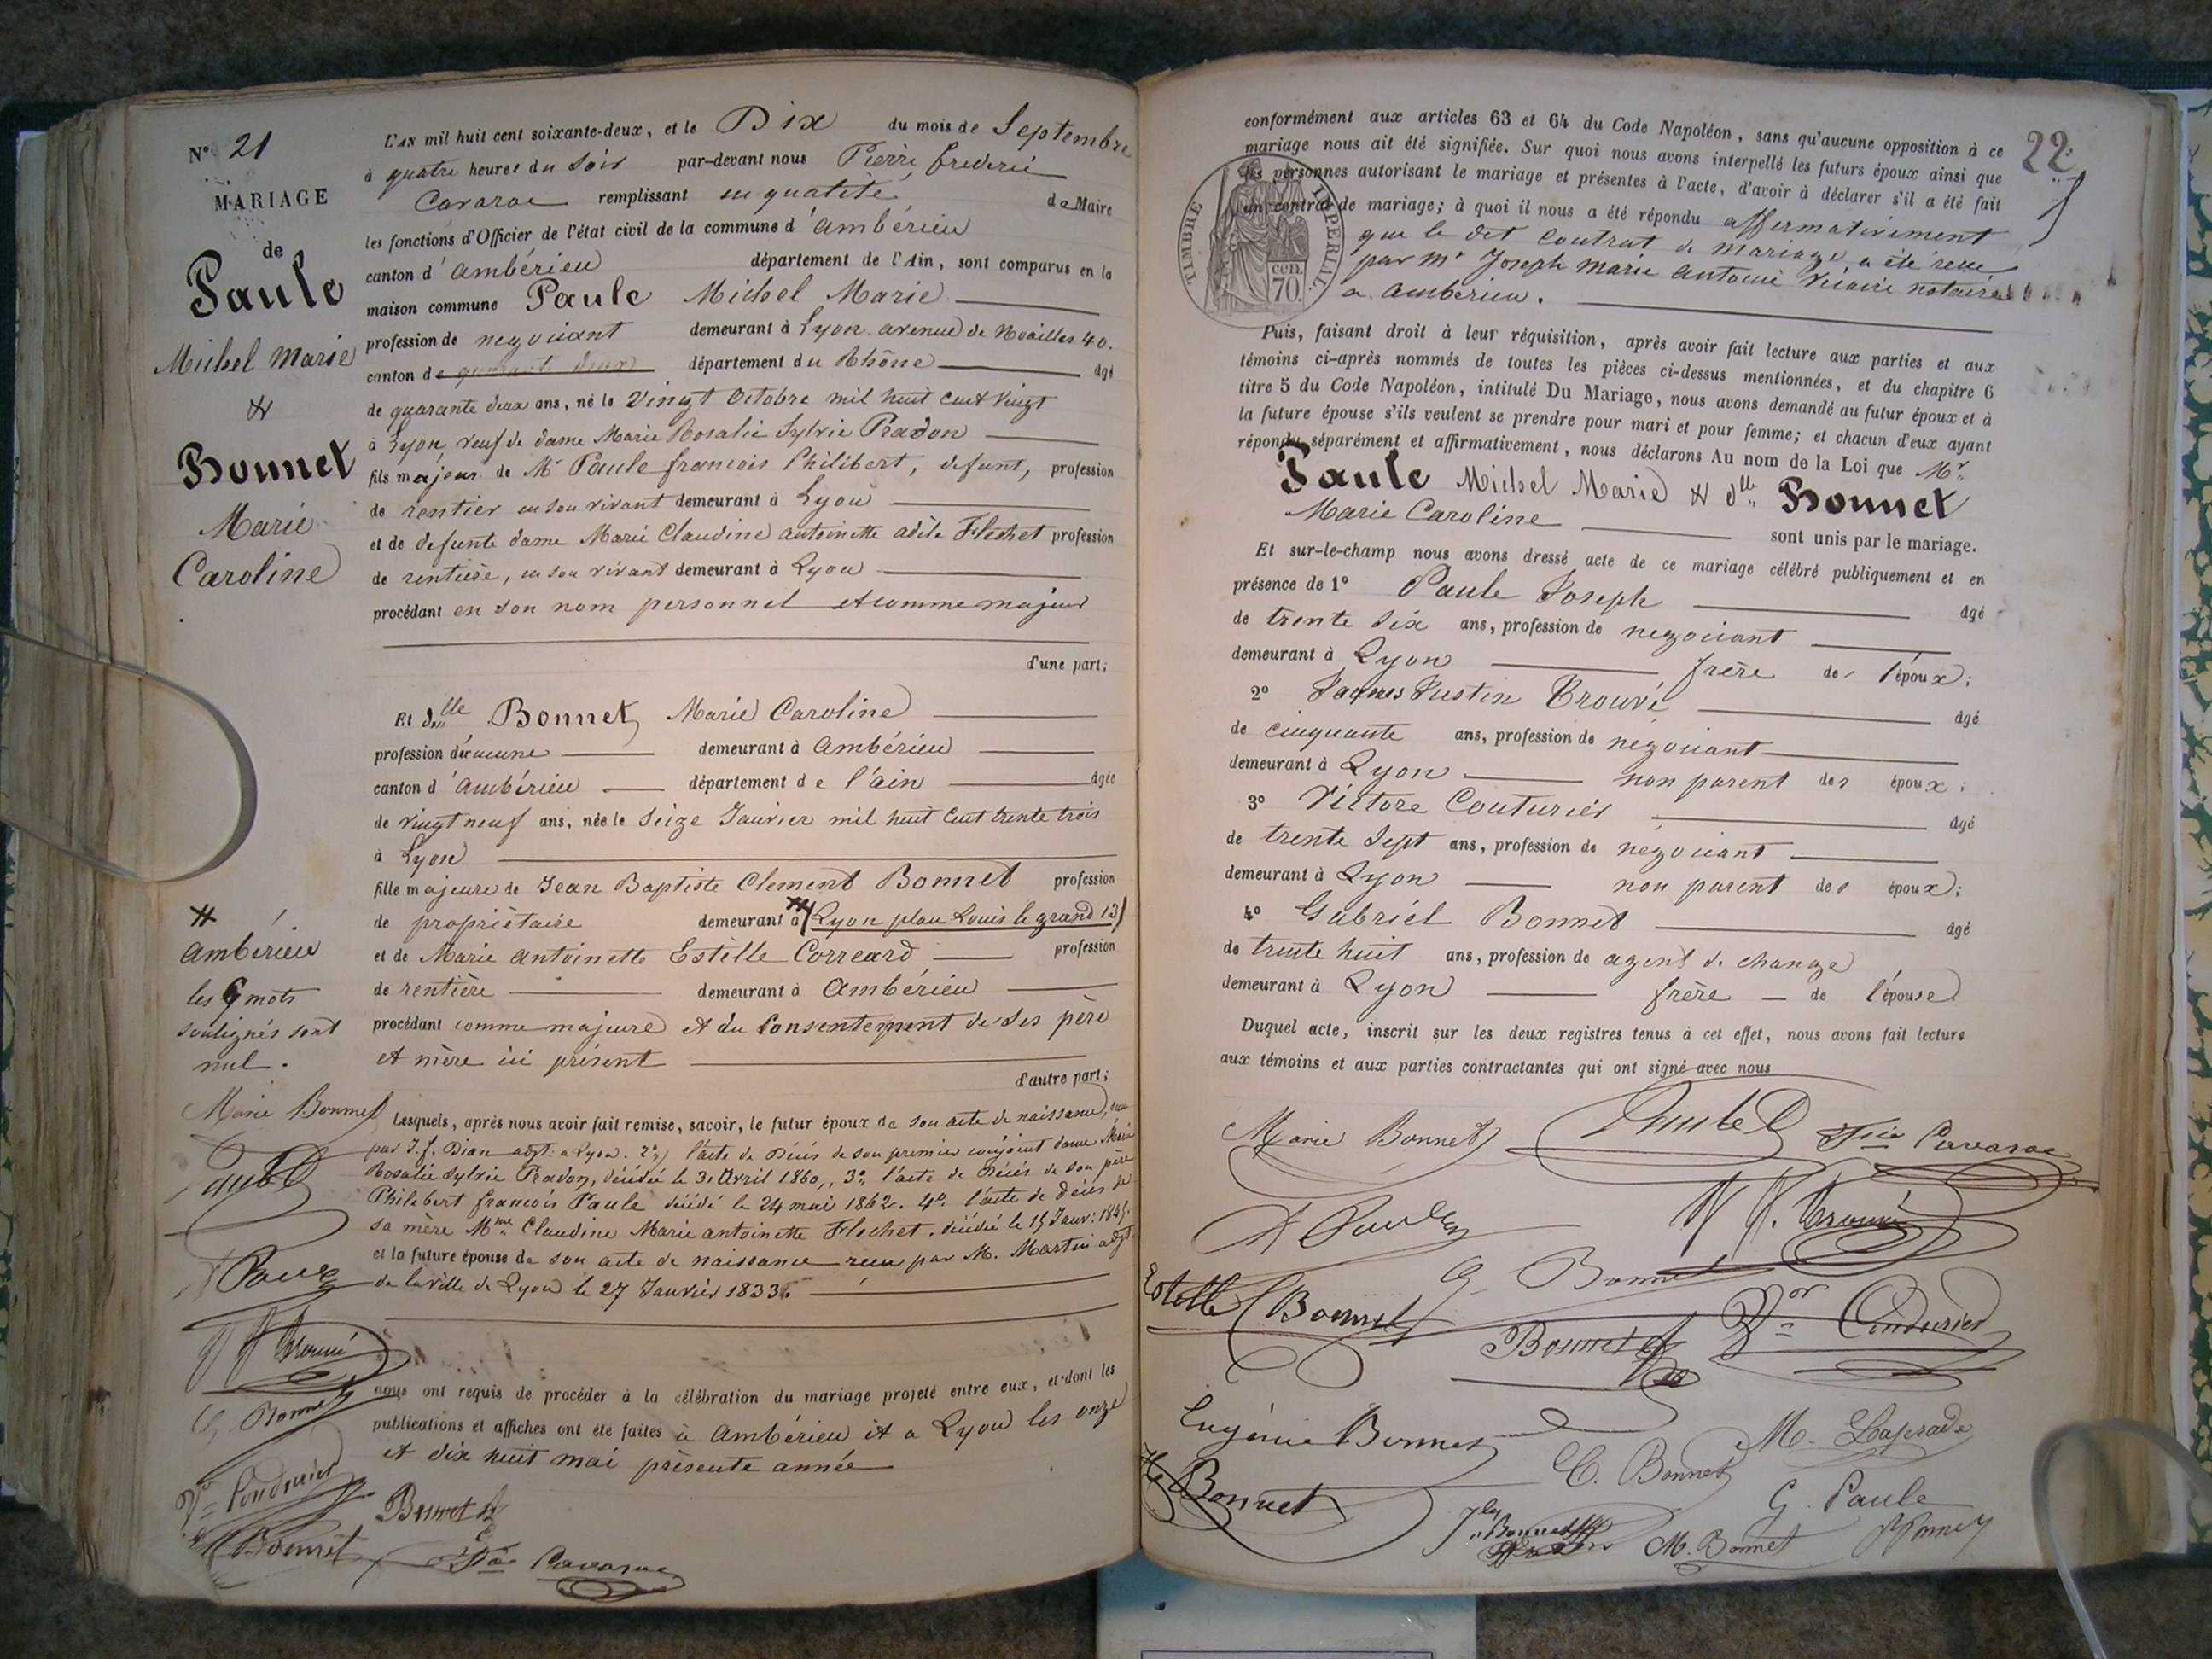 N° 21
MARIAGE
de
Paule
Michel Marie
&
Bonnet
Marie
Caroline
L'AN mil huit cent soixante-deux, et le Dix du mois de Septembre
à quatre heures du soir par-devant nous Pierre frederic
Cavaroc remplissant en qualité de Maire
les fonctions d'Officier de l'état civil de la commune d'ambérieu
canton d'ambérieu département de l'Ain, sont comparus en la
maison commune Paule Michel Marie
profession de negociant demeurant à Lyon avenue de Noailles 40.
canton de quarante deux département du Rhône âgé
de quarante deux ans, né le Vingt Octobre mil huit cent vingt
à Lyon, veuf de dame Marie Rosalie Sylvie Pradon
fils majeur de Mr Paule francois Philibert, defunt, profession
de rentier en son vivant demeurant à Lyon
et de defunte dame Marie Claudine antoinette adèle Flechet profession
de rentière, en son vivant demeurant à Lyon
procédant en son nom personnel et comme majeur
d'une part;
Et dlle Bonnet Marie Caroline
profession d'aucune demeurant à ambérieu
canton d'ambérieu département de l'ain âgée
de vingt neuf ans, née le seize Janvier mil huit cent trente trois
à Lyon
fille majeure de Jean Baptiste Clement Bonnet profession
de propriétaire demeurant à (Lyon place Louis le grand 13)
et de Marie antoinette Estelle Correard profession
de rentière demeurant à ambérieu
procédant comme majeure et du consentement de ses père
et mère ici présent
d'autre part;
ambérieu
les 6 mots
soulignés sont
nul.
Marie Bonnet
Lesquels, après nous avoir fait remise, savoir, le futur époux de son acte de naissance, reçu
par J. f. Dian adjt. a Lyon. 2° l'acte de Décès de son premier conjoint dame Marie
Rosalie Sylvie Pradon, décédée le 3 Avril 1860, 3° l'acte de Décès de son père
Philibert francois Paule décédé le 24 mai 1862. 4° l'acte de décès de
sa mère Mme Claudine Marie antoinette Flechet. décédée le 15 Janv:
et la future épouse de son acte de naissance reçu par M. Martin adjt
de la ville de Lyon le 27 Janvier 1833.
nous ont requis de procéder à la célébration du mariage projeté entre eux, et dont les
publications et affiches ont été faites à ambérieu et a Lyon les onze
et dix huit mai présente année
G. Bonnet
Bonnet
Bonnet
Fic Cavaroc
22
conformément aux articles 63 et 64 du Code Napoléon, sans qu'aucune opposition à ce
mariage nous ait été signifiée. Sur quoi nous avons interpellé les futurs époux ainsi que
les personnes autorisant le mariage et présentes à l'acte, d'avoir à déclarer s'il a été fait
un contrat de mariage; à quoi il nous a été répondu affirmativement
que le dit contrat de mariage a été reçu
par Mr Joseph marie antoine notaire
a ambérieu.
TIMBRE IMPERIAL
70 cen.
Puis, faisant droit à leur réquisition, après avoir fait lecture aux parties et aux
témoins ci-après nommés de toutes les pièces ci-dessus mentionnées, et du chapitre 6
titre 5 du Code Napoléon, intitulé Du Mariage, nous avons demandé au futur époux et à
la future épouse s'ils veulent se prendre pour mari et pour femme; et chacun d'eux ayant
répondu séparément et affirmativement, nous déclarons Au nom de la Loi que Mr
Paule Michel Marie & dlle Bonnet
Marie Caroline
sont unis par le mariage.
Et sur-le-champ nous avons dressé acte de ce mariage célébré publiquement et en
présence de 1° Paule Joseph âgé
de trente six ans, profession de negociant
demeurant à Lyon frère de l'époux;
2° Jaques Justin Trouvé âgé
de cinquante ans, profession de negociant
demeurant à Lyon non parent des époux;
3° Victore Couturier âgé
de trente sept ans, profession de negociant
demeurant à Lyon non parent des époux;
4° Gabriel Bonnet âgé
de trente huit ans, profession de agent de change
demeurant à Lyon frère de l'épouse
Duquel acte, inscrit sur les deux registres tenus à cet effet, nous avons fait lecture
aux témoins et aux parties contractantes qui ont signé avec nous
Marie Bonnet Paule Fic Cavaroc
G. Bonnet
Estelle Bonnet
Bonnet
Eugénie Bonnet
C. Bonnet
M. Laprade
Bonnet
G. Paule
M. Bonnet